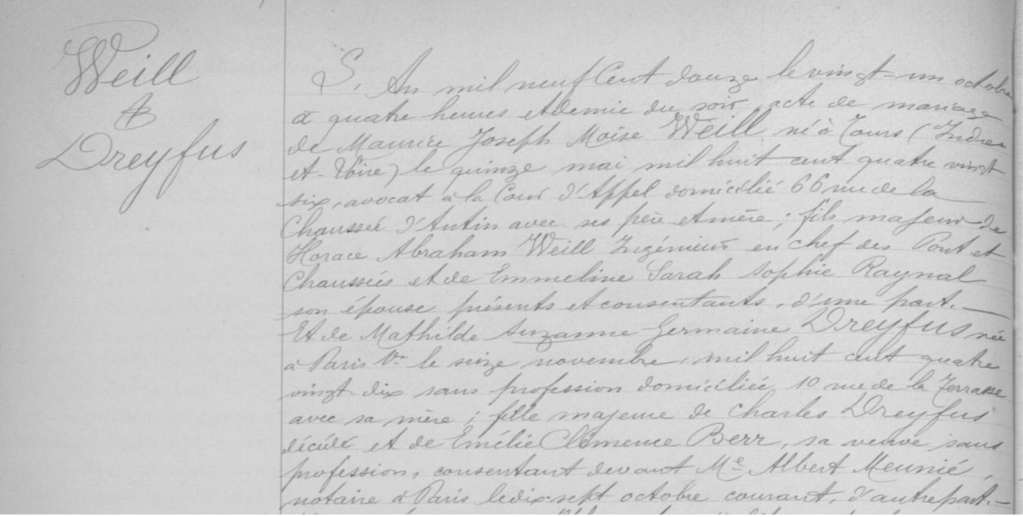 Weill
&
Dreyfus
L'An mil neuf Cent douze le vingt-un octobre
à quatre heures et demie du soir, acte de mariage
de Maurice Joseph Moïse Weill né à Tours (Indre
et-Loire) le quinze mai mil huit cent quatre vingt
six, avocat à la Cour d'Appel domicilié 66 rue de la
Chaussée d'Antin avec ses père et mère ; fils majeur de
Horace Abraham Weill Ingénieur en chef des Pont et
Chaussées et de Emmeline Sarah Sophie Raynal
son épouse présents et consentants, d'une part.—
Et de Mathilde Suzanne Germaine Dreyfus née
à Paris le seize novembre, mil huit cent quatre
vingt dix sans profession domiciliée, 10 rue de la Terrasse
avec sa mère ; fille majeure de Charles Dreyfus
décédé et de Emélie Clémence Berr, sa veuve sans
profession, consentant devant Me Albert Meunié,
notaire à Paris le dix-sept octobre courant, d'autre part.—